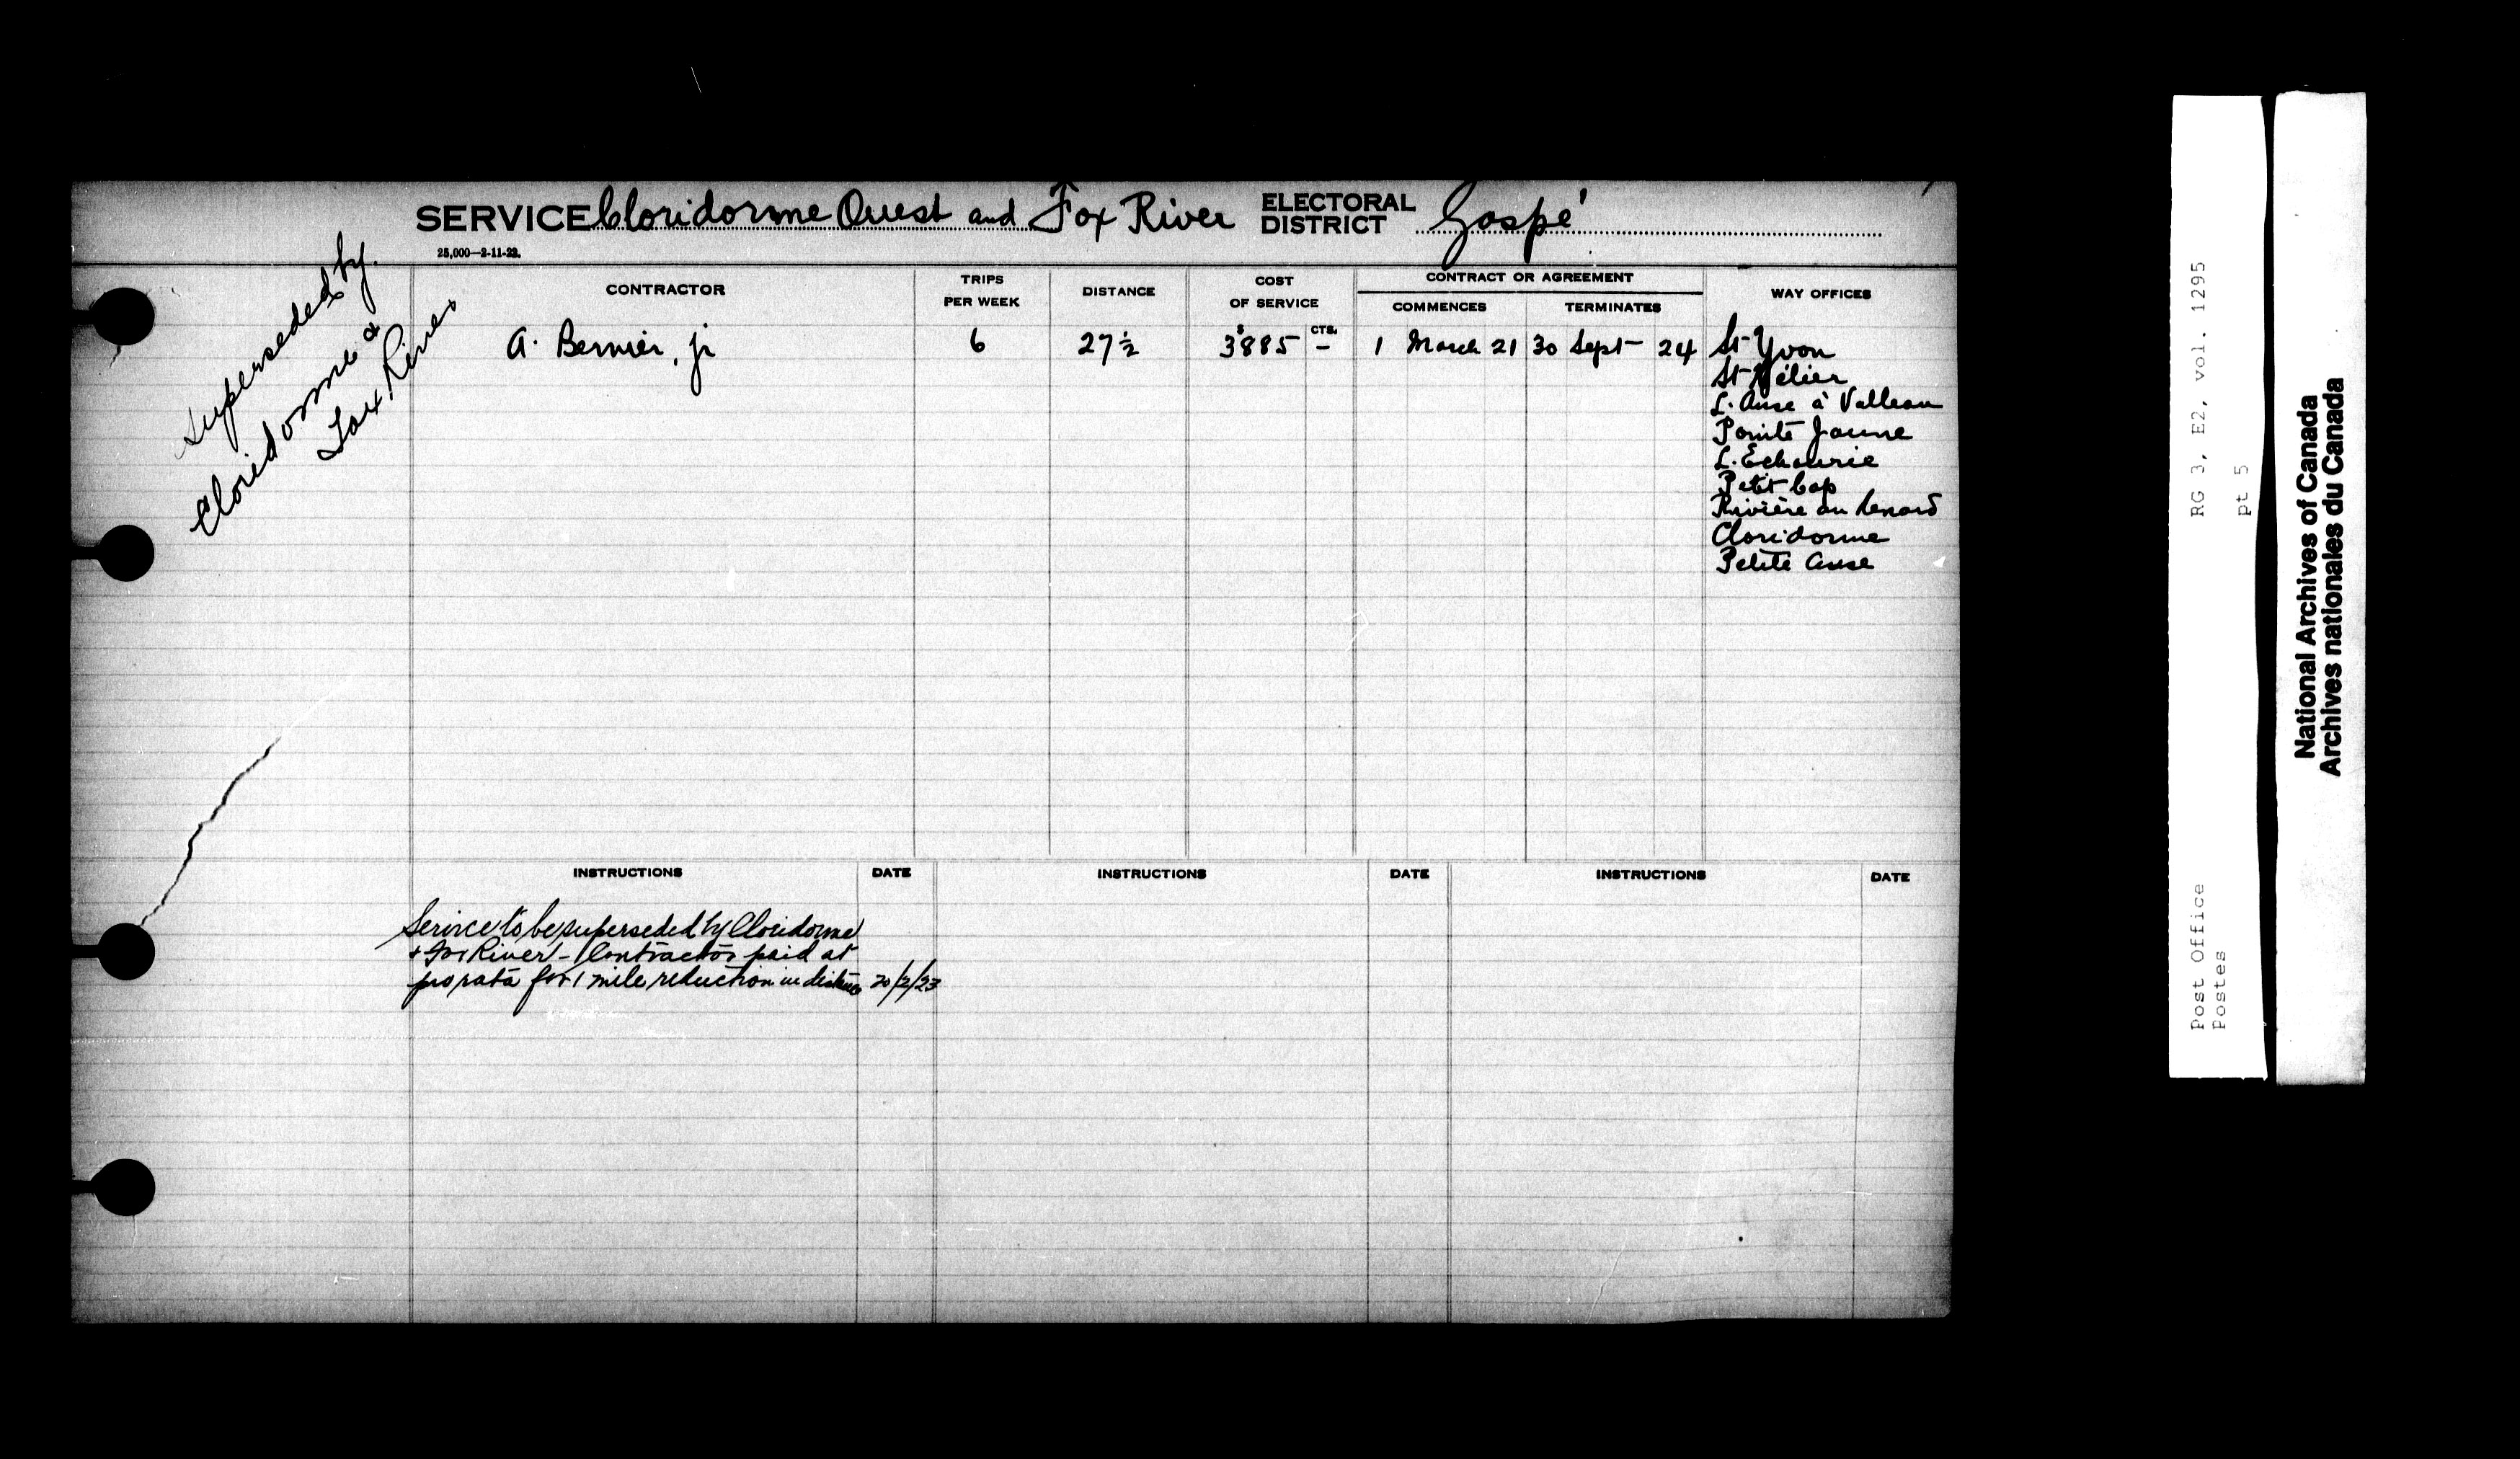 SERVICE Cloridorme Ouest and Fox River ELECTORAL DISTRICT Gaspé
25,000—2-11-22.
Superseded by
Cloridorme &
Fox River
CONTRACTOR
TRIPS PER WEEK
DISTANCE
COST OF SERVICE
CONTRACT OR AGREEMENT
COMMENCES
TERMINATES
WAY OFFICES
A. Bernier, jr 6 27 1/2 $ 3885 CTS. — 1 March 21 30 Sept 24 St Yvon
St Hélier
L. Anse à Valleau
Pointe Jaune
L. Echourie
Petit Cap
Rivière au Renard
Cloridorme
Petite Anse
INSTRUCTIONS DATE INSTRUCTIONS DATE INSTRUCTIONS DATE
Service to be superseded by Cloridorme
& Fox River - Contractor paid at
pro rata for 1 mile reduction in distance 20/2/23
RG 3, E2, vol. 1295
pt 5
Post Office
Postes
National Archives of Canada
Archives nationales du Canada